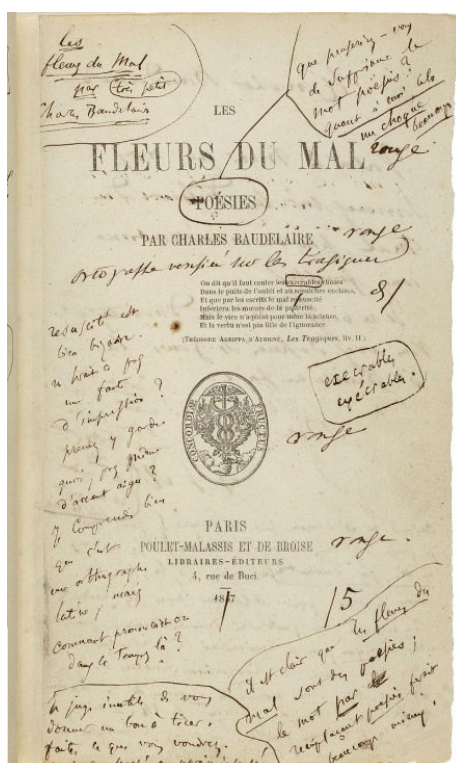 les
fleurs du Mal
par (très petit)
Charles Baudelaire
que penseriez-vous
de supprimer le
mot poésies?
quant à moi cela
me choque
beaucoup
LES
FLEURS DU MAL
rouge
POÉSIES
PAR CHARLES BAUDELAIRE
rouge
ortographe verifiée sur les tragiques
On dit qu'il faut couler les execrables choses
Dans le puits de l'oubli et au sepulchre encloses,
Et que par les escrits le mal resuscité
Infectera les mœurs de la postérité;
Mais le vice n'a point pour mère la science,
Et la vertu n'est pas fille de l'ignorance
(THÉODORE AGRIPPA D'AUBIGNÉ, Les Tragiques, liv. II)
resuscité est
bien bizarre.
n'y aurait-il pas
une faute
d'impression?
prenez y garde.
quoi, pas même
d'accent aigu?
je comprends bien
que c'est
une orthographe
latine, mais
comment prononçait-on
dans le temps là?
execrables
exécrables.
CONCORDIÆ FRUCTUS
rouge
PARIS
POULET-MALASSIS ET DE BROISE
rouge.
LIBRAIRES-ÉDITEURS
4, rue de Buci.
1857
/5
il est clair que les fleurs du
mal sont des poésies;
le mot par
remplaçant poésies ferait
beaucoup mieux!
Je juge inutile de vous
donner un bon à tirer.
faites ce que vous voudrez.